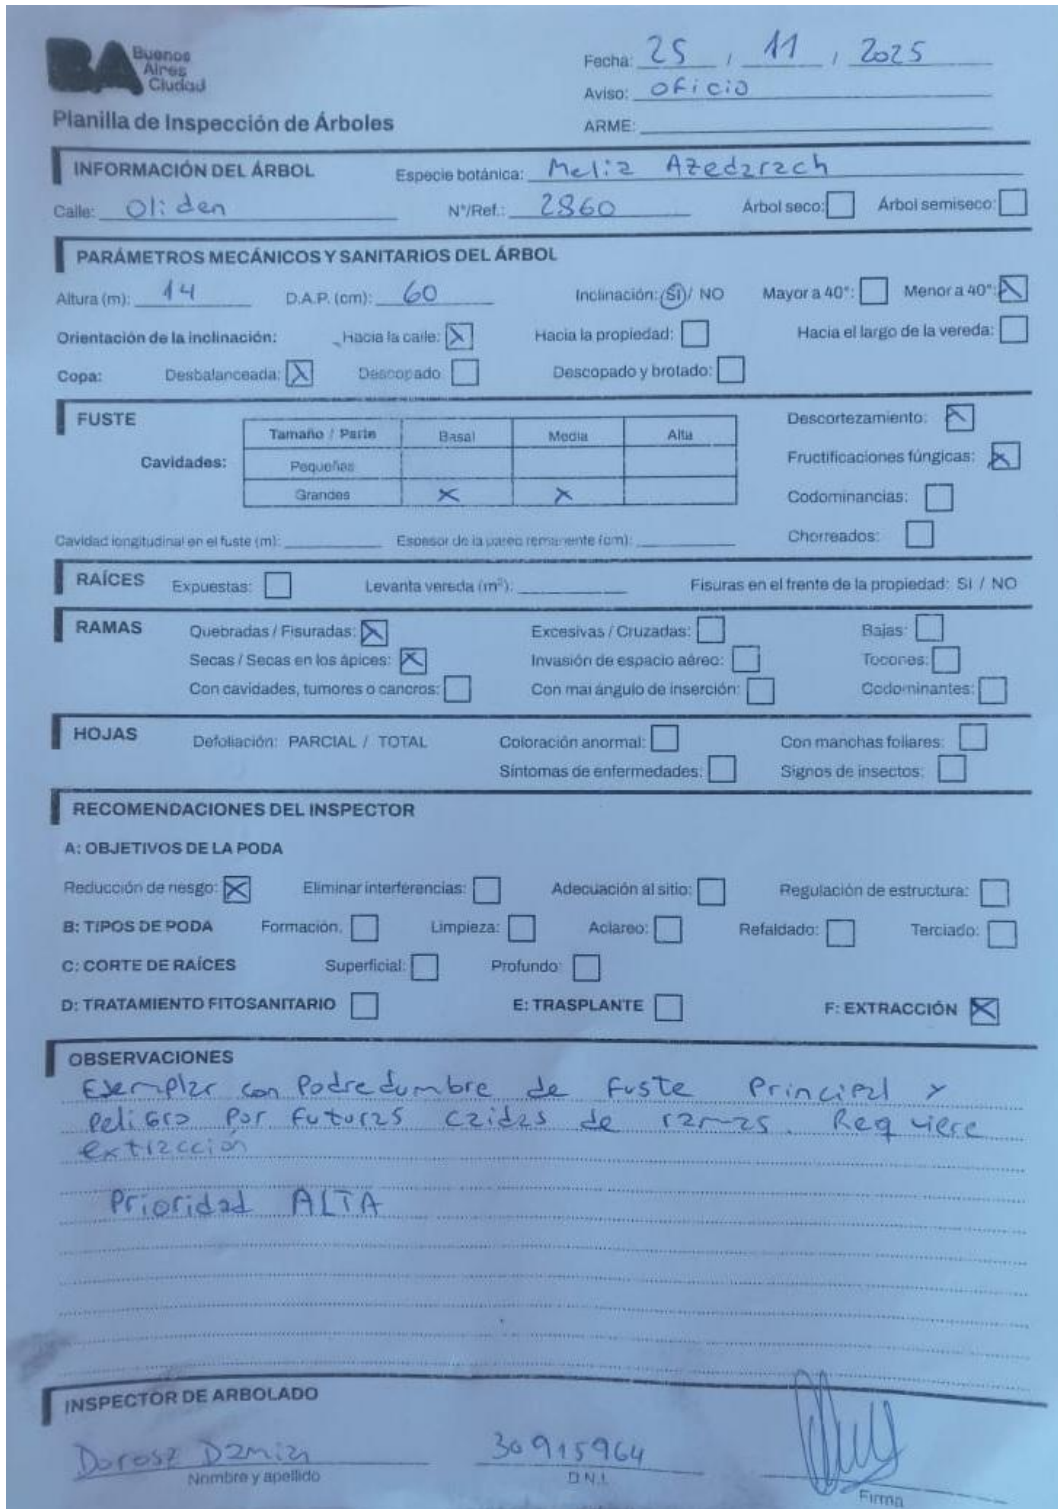 BA Buenos Aires Ciudad
Fecha: 25 / 11 / 2025
Aviso: oficio
Planilla de Inspección de Árboles
ARME:
INFORMACIÓN DEL ÁRBOL Especie botánica: Melia Azedarach
Calle: Oliden N°/Ref.: 2860 Árbol seco: Árbol semiseco:
PARÁMETROS MECÁNICOS Y SANITARIOS DEL ÁRBOL
Altura (m): 14 D.A.P. (cm): 60 Inclinación: SI / NO Mayor a 40°: Menor a 40°: X
Orientación de la inclinación: Hacia la calle: X Hacia la propiedad: Hacia el largo de la vereda:
Copa: Desbalanceada: X Descopado: Descopado y brotado:
FUSTE Descortezamiento: X
Tamaño / Parte Basal Media Alta
Cavidades: Pequeñas Fructificaciones fúngicas: X
Grandes X X Codominancias:
Cavidad longitudinal en el fuste (m): Espesor de la pared remanente (cm): Chorreados:
RAÍCES Expuestas: Levanta vereda (m²): Fisuras en el frente de la propiedad: SI / NO
RAMAS Quebradas / Fisuradas: X Excesivas / Cruzadas: Bajas:
Secas / Secas en los ápices: X Invasión de espacio aéreo: Tocones:
Con cavidades, tumores o cancros: Con mal ángulo de inserción: Codominantes:
HOJAS Defoliación: PARCIAL / TOTAL Coloración anormal: Con manchas foliares:
Síntomas de enfermedades: Signos de insectos:
RECOMENDACIONES DEL INSPECTOR
A: OBJETIVOS DE LA PODA
Reducción de riesgo: X Eliminar interferencias: Adecuación al sitio: Regulación de estructura:
B: TIPOS DE PODA Formación: Limpieza: Aclareo: Refaldado: Terciado:
C: CORTE DE RAÍCES Superficial: Profundo:
D: TRATAMIENTO FITOSANITARIO E: TRASPLANTE F: EXTRACCIÓN X
OBSERVACIONES
Ejemplar con Podredumbre de Fuste Principal y
Peligro Por Futuras caidas de ramas. Requiere
extracción
Prioridad ALTA
INSPECTOR DE ARBOLADO
Dorosz Damian 30915964
Nombre y apellido D.N.I. Firma